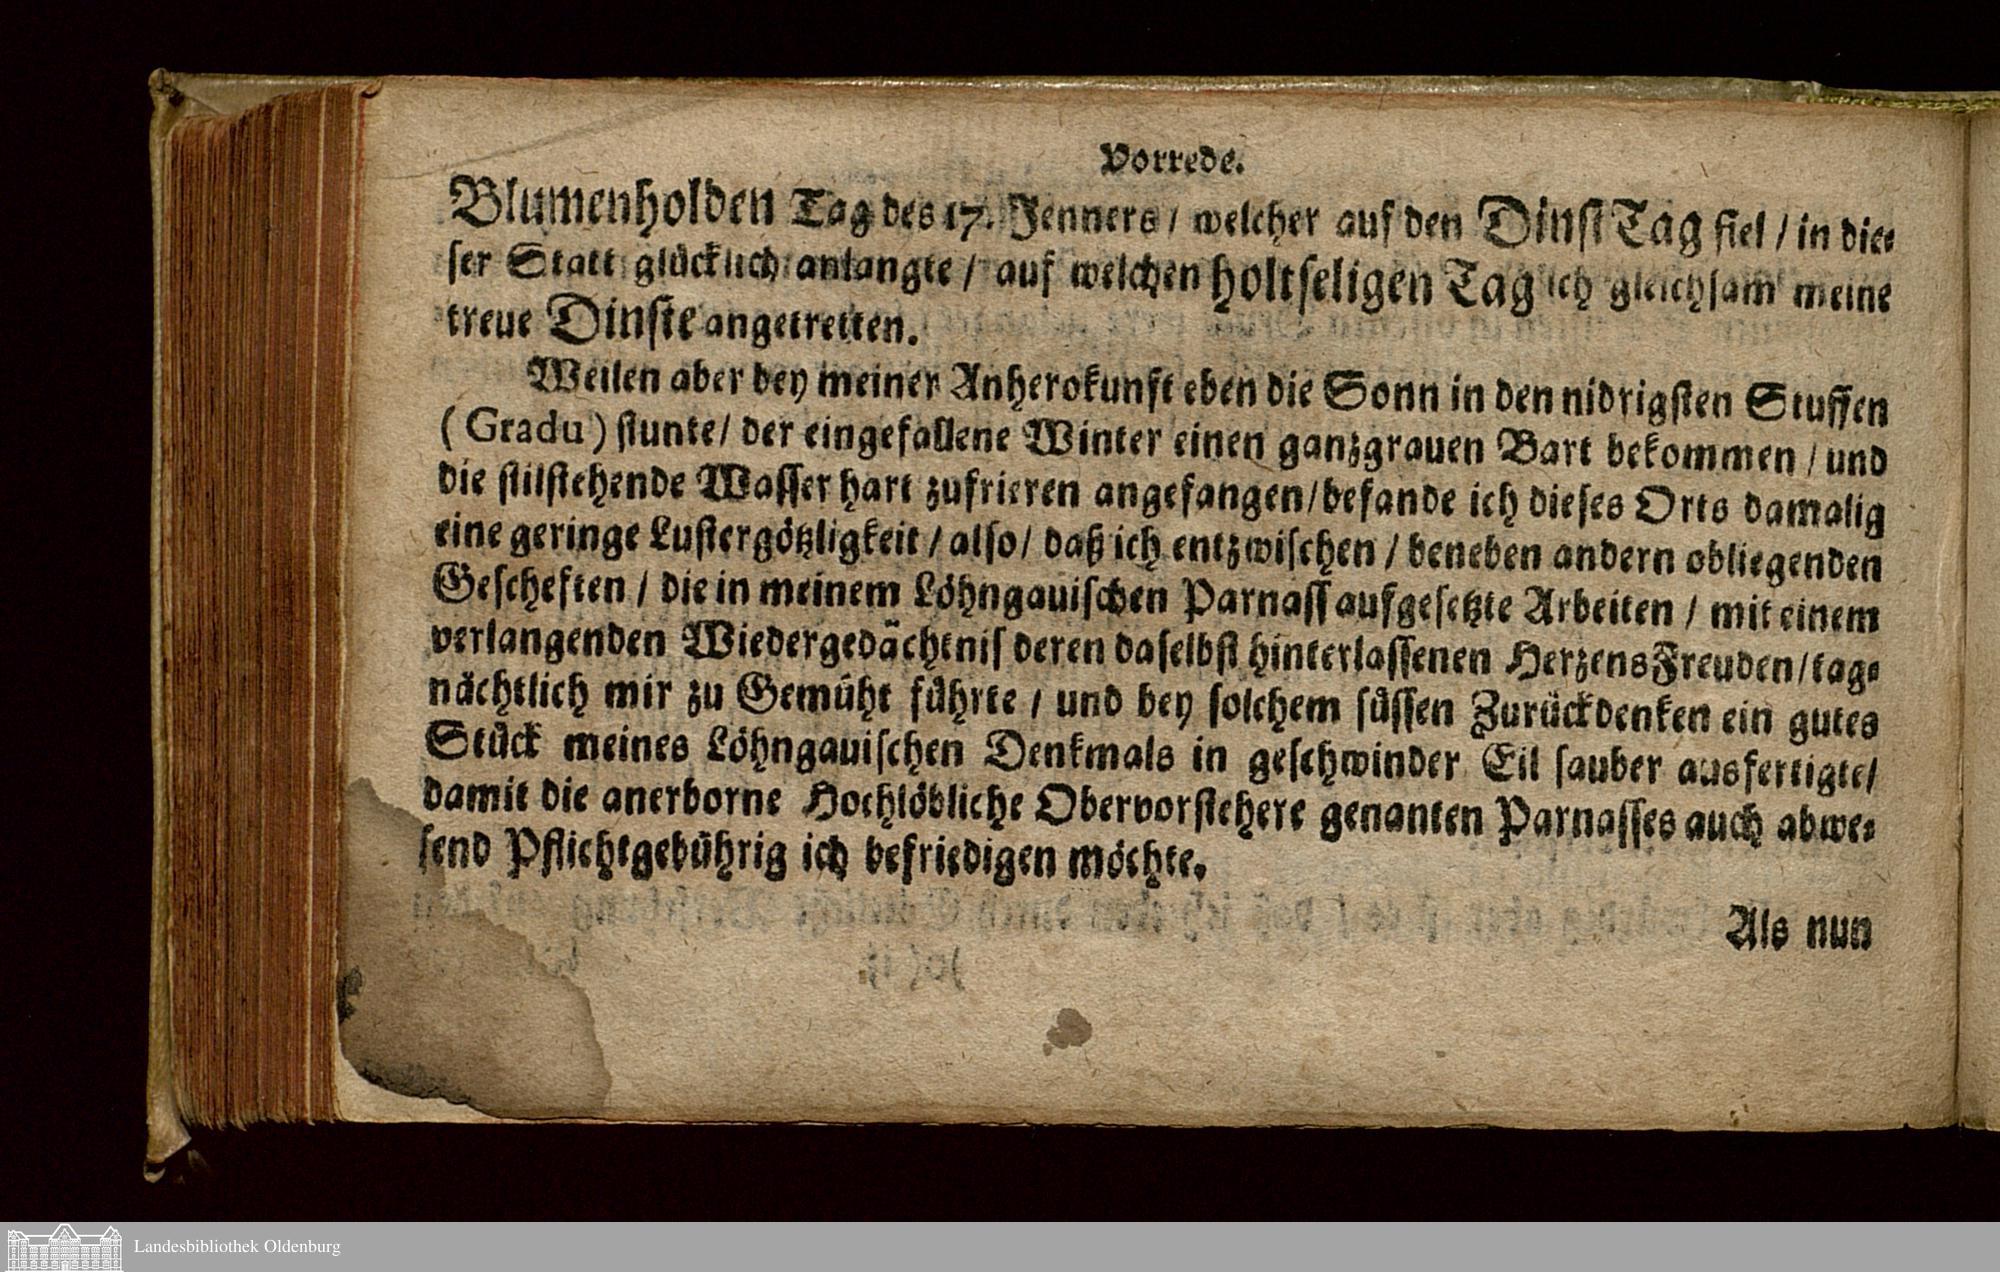 Vorrede.
Blumenholden Tag des 17. Jenners / welcher auf den DinstTag fiel / in die-
ser Statt glücklich anlangte / auf welchen holtseligen Tag ich gleichsam meine
treue Dinste angetretten.
Weilen aber bey meiner Anherokunft eben die Sonn in den nidrigsten Stuffen
(Gradu) stunte / der eingefallene Winter einen ganzgrauen Bart bekommen / und
die stilstehende Wasser hart zufrieren angefangen / befande ich dieses Orts damalig
eine geringe Lustergötzligkeit / also / daß ich entzwischen / beneben andern obliegenden
Gescheften / die in meinem Löhngauischen Parnass aufgesetzte Arbeiten / mit einem
verlangenden Wiedergedächtnis deren daselbst hinterlassenen HerzensFreuden / tag-
nächtlich mir zu Gemüht führte / und bey solchem süssen Zurückdenken ein gutes
Stück meines Löhngauischen Denkmals in geschwinder Eil sauber ausfertigte /
damit die anerborne Hochlöbliche Obervorstehere genanten Parnasses auch abwe-
send Pflichtgebührig ich befriedigen möchte.
Als nun
Landesbibliothek Oldenburg